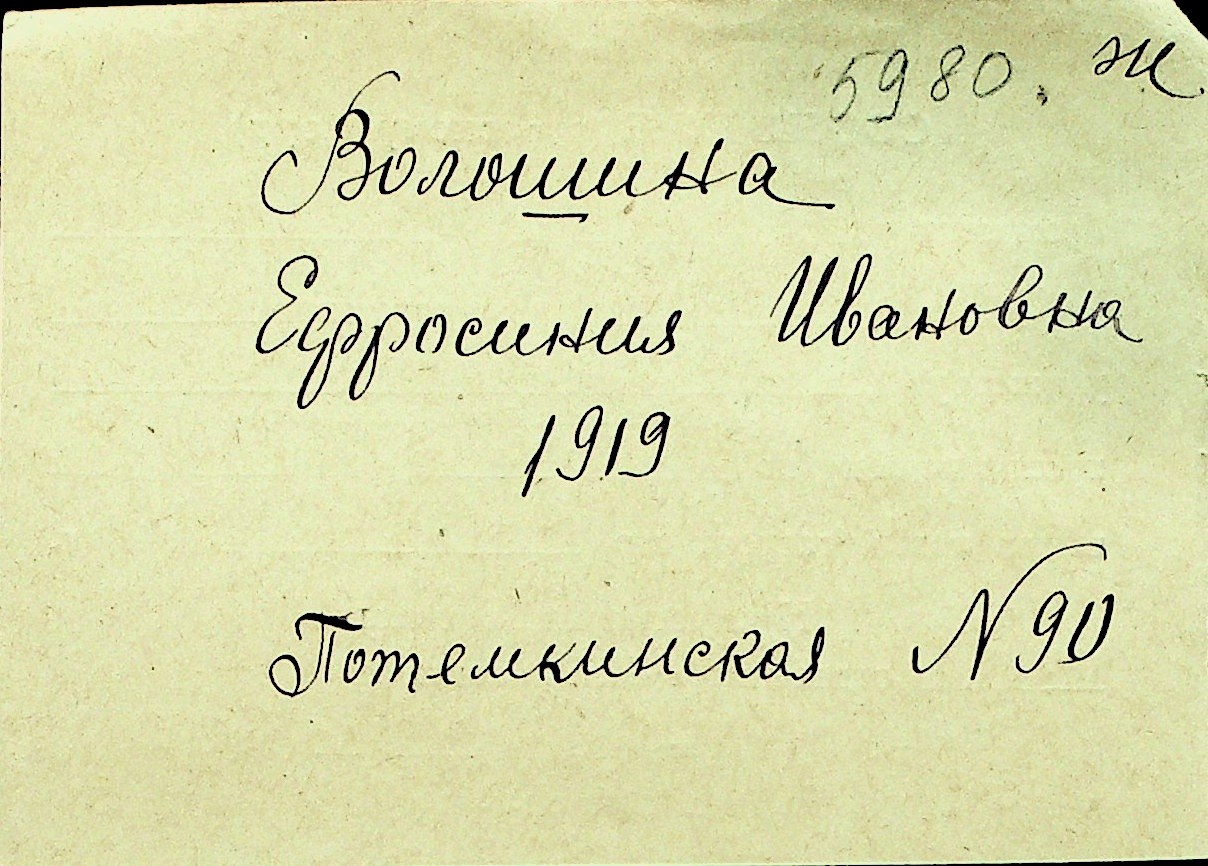 5980. ж
Волошина
Ефросиния Ивановна
1919
Потемкинская N 90